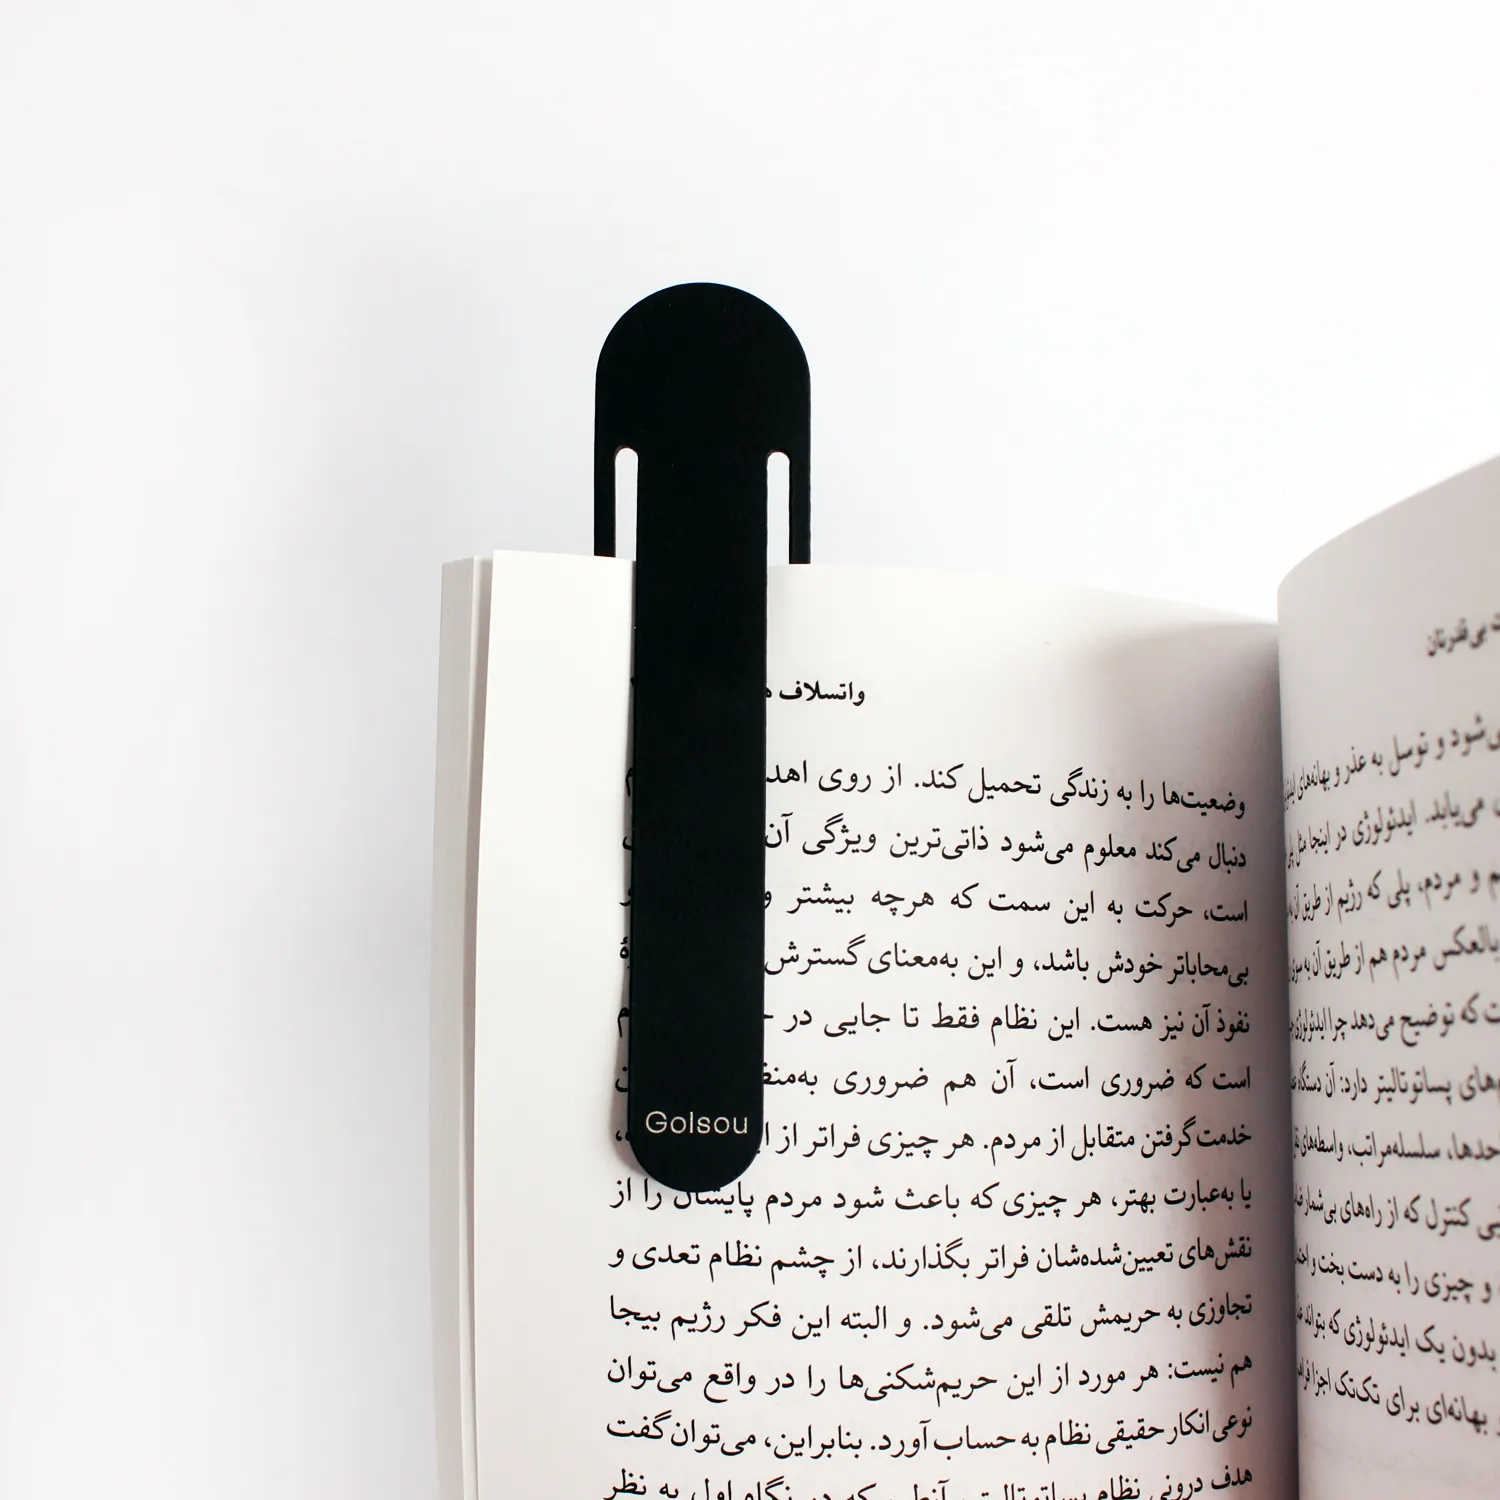 بی‌قدرتان
می‌شود و توسل به عذر و بهانه‌های
می‌یابد. ایدئولوژی در اینجا مثل پلی
و مردم، پلی که رژیم از طریق آن به
بالعکس مردم هم از طریق آن به سوی
که توضیح می‌دهد چرا ایدئولوژی
پساتوتالیتر دارد: آن دستگاه
سلسله‌مراتب، واسطه‌های
کنترل که از راه‌های بی‌شمار
و چیزی را به دست بخت و
بدون یک ایدئولوژی که بتواند
بهانه‌ای برای تک‌تک اجزا
واتسلاف
وضعیت‌ها را به زندگی تحمیل کند. از روی
دنبال می‌کند معلوم می‌شود ذاتی‌ترین ویژگی آن
است، حرکت به این سمت که هرچه بیشتر
بی‌محاباتر خودش باشد، و این به‌معنای گسترش
نفوذ آن نیز هست. این نظام فقط تا جایی در
است که ضروری است، آن هم ضروری
خدمت‌گرفتن متقابل از مردم. هر چیزی فراتر از
یا به‌عبارت بهتر، هر چیزی که باعث شود مردم پایشان را از
نقش‌های تعیین‌شده‌شان فراتر بگذارند، از چشم نظام تعدی و
تجاوزی به حریمش تلقی می‌شود. و البته این فکر رژیم بیجا
هم نیست: هر مورد از این حریم‌شکنی‌ها را در واقع می‌توان
نوعی انکار حقیقی نظام به حساب آورد. بنابراین، می‌توان گفت
هدف درونی نظام پساتوتالیتر آنطور که در نگاه اول به نظر
Golsou